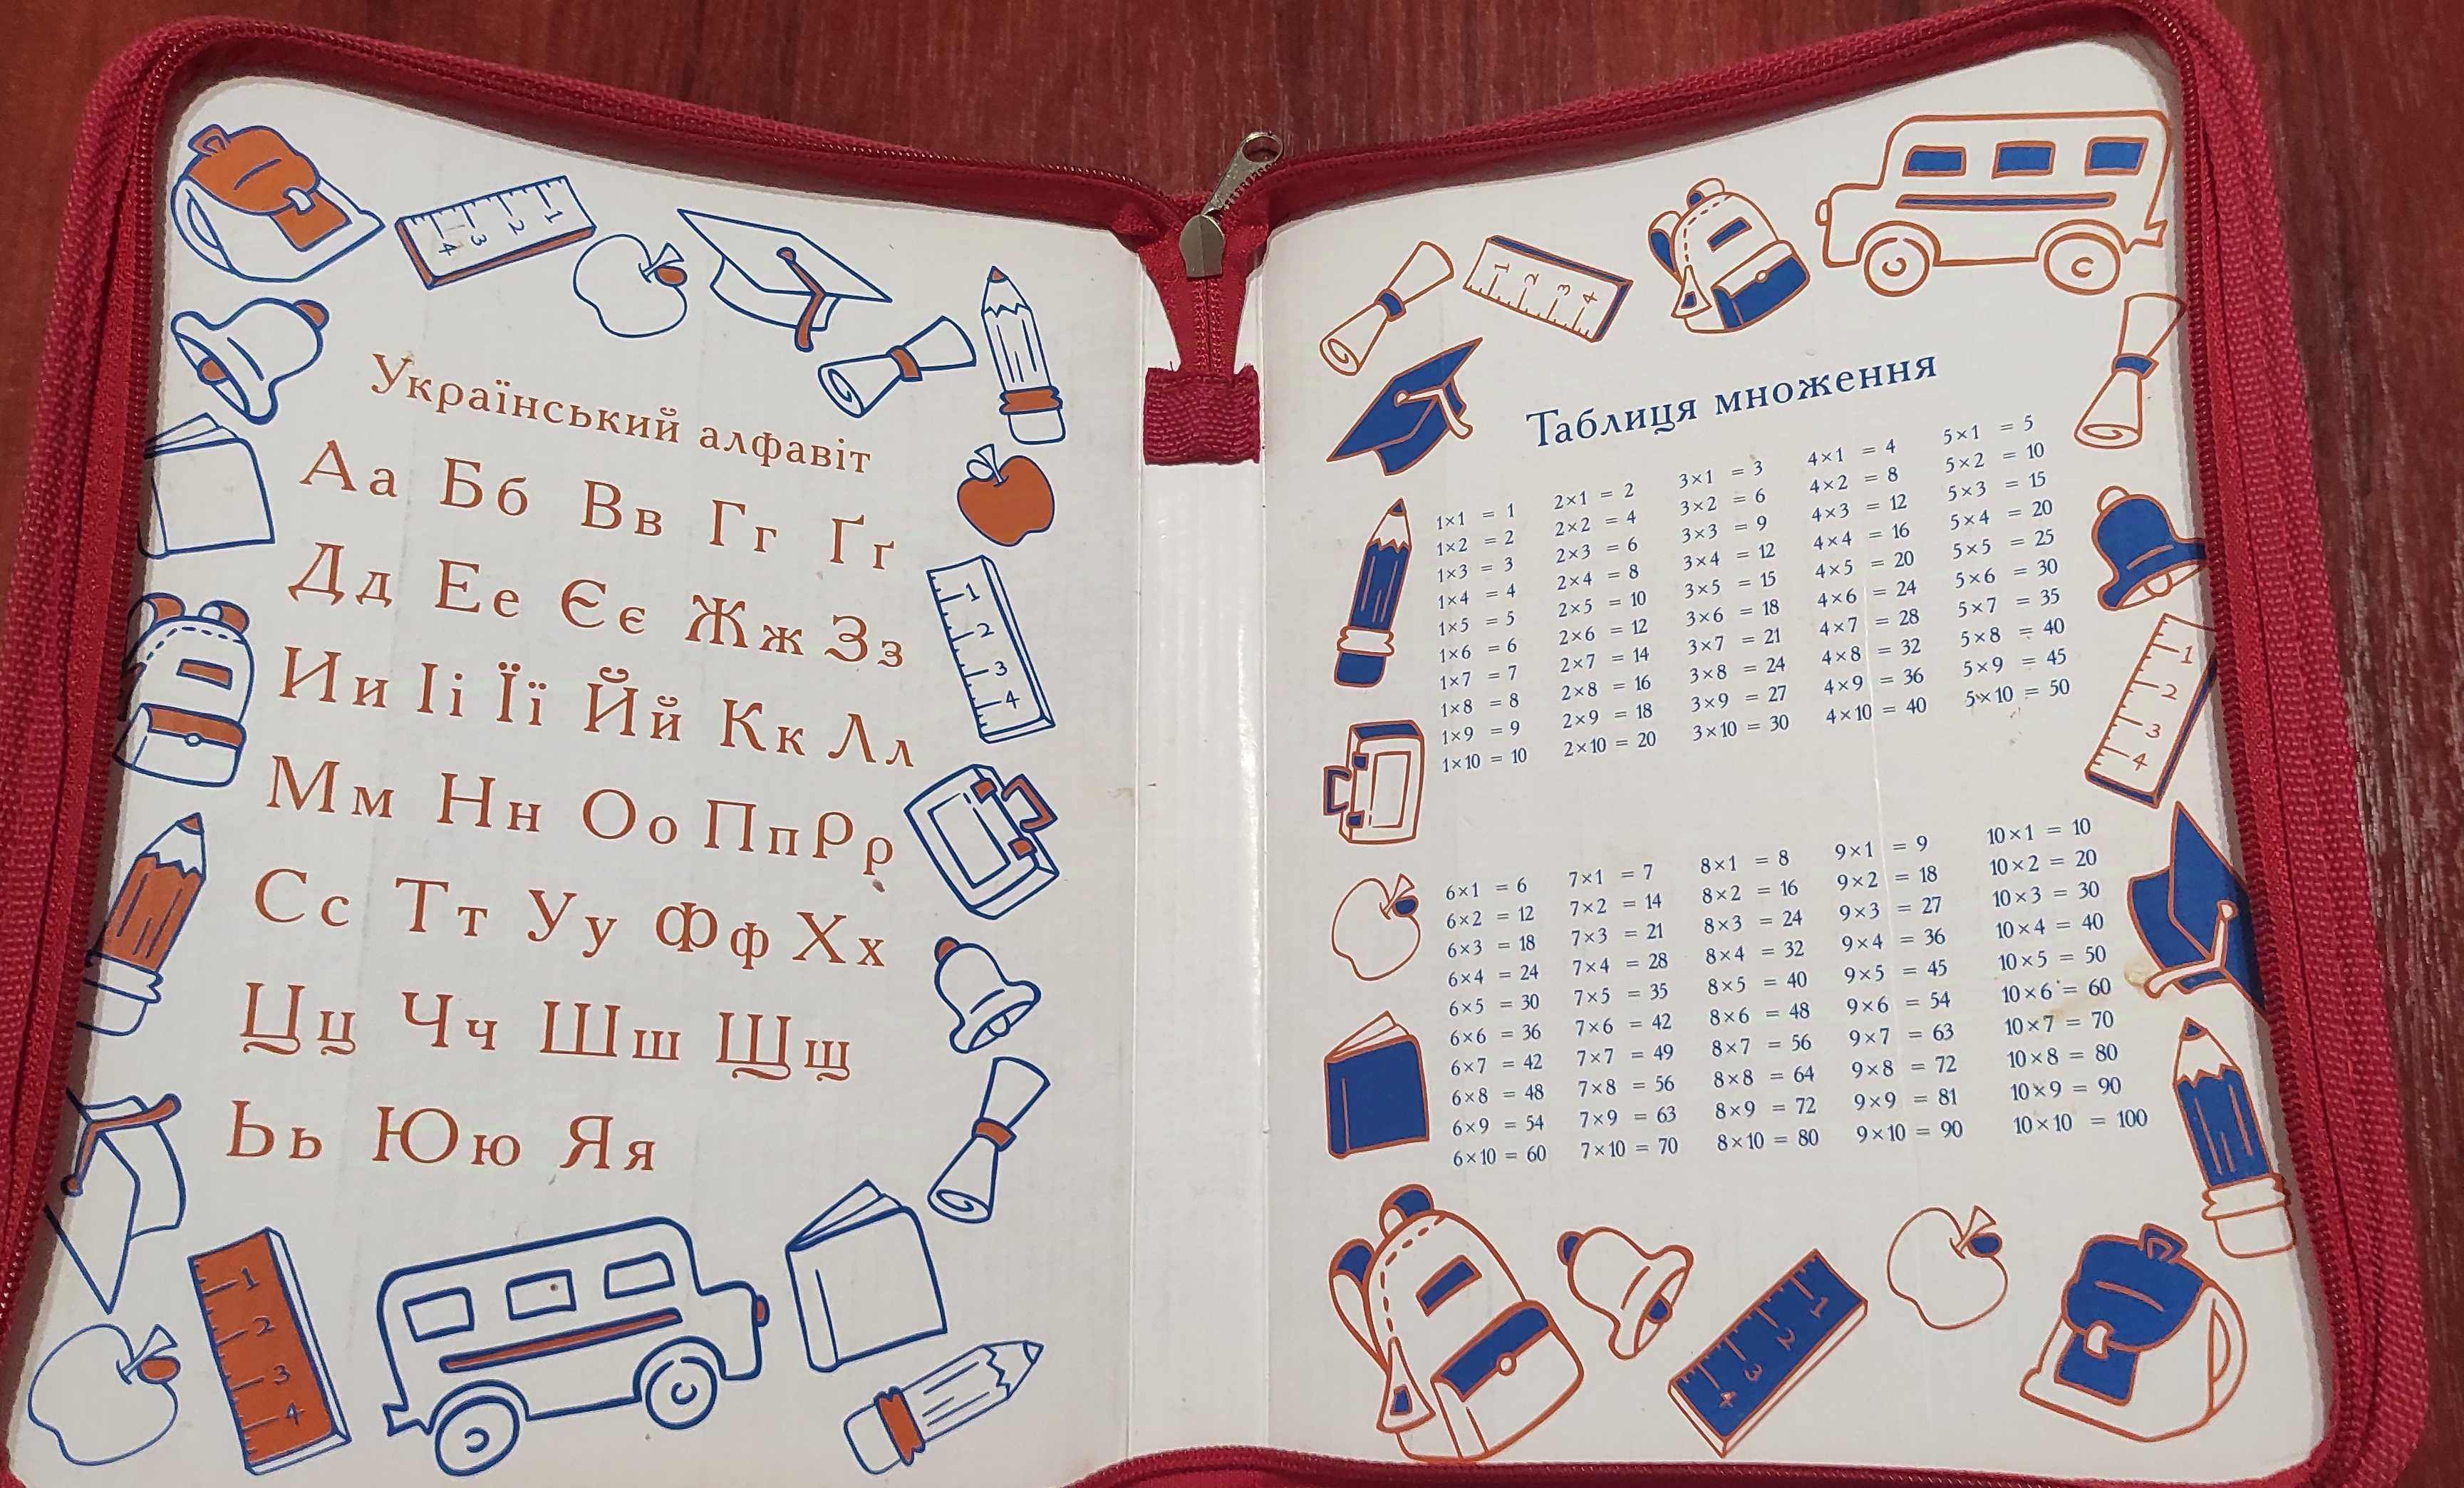 Український алфавіт
Аа Бб Вв Гг Ґґ
Дд Ее Єє Жж Зз
Ии Іі Її Йй Кк Лл
Мм Нн Оо Пп Рр
Сс Тт Уу Фф Хх
Цц Чч Шш Щщ
Ьь Юю Яя
1 2 3 4
1 2 3 4
1 2 3 4
Таблиця множення
1×1 = 1 2×1 = 2 3×1 = 3 4×1 = 4 5×1 = 5
1×2 = 2 2×2 = 4 3×2 = 6 4×2 = 8 5×2 = 10
1×3 = 3 2×3 = 6 3×3 = 9 4×3 = 12 5×3 = 15
1×4 = 4 2×4 = 8 3×4 = 12 4×4 = 16 5×4 = 20
1×5 = 5 2×5 = 10 3×5 = 15 4×5 = 20 5×5 = 25
1×6 = 6 2×6 = 12 3×6 = 18 4×6 = 24 5×6 = 30
1×7 = 7 2×7 = 14 3×7 = 21 4×7 = 28 5×7 = 35
1×8 = 8 2×8 = 16 3×8 = 24 4×8 = 32 5×8 = 40
1×9 = 9 2×9 = 18 3×9 = 27 4×9 = 36 5×9 = 45
1×10 = 10 2×10 = 20 3×10 = 30 4×10 = 40 5×10 = 50
6×1 = 6 7×1 = 7 8×1 = 8 9×1 = 9 10×1 = 10
6×2 = 12 7×2 = 14 8×2 = 16 9×2 = 18 10×2 = 20
6×3 = 18 7×3 = 21 8×3 = 24 9×3 = 27 10×3 = 30
6×4 = 24 7×4 = 28 8×4 = 32 9×4 = 36 10×4 = 40
6×5 = 30 7×5 = 35 8×5 = 40 9×5 = 45 10×5 = 50
6×6 = 36 7×6 = 42 8×6 = 48 9×6 = 54 10×6 = 60
6×7 = 42 7×7 = 49 8×7 = 56 9×7 = 63 10×7 = 70
6×8 = 48 7×8 = 56 8×8 = 64 9×8 = 72 10×8 = 80
6×9 = 54 7×9 = 63 8×9 = 72 9×9 = 81 10×9 = 90
6×10 = 60 7×10 = 70 8×10 = 80 9×10 = 90 10×10 = 100
1 2 3 4
1 2 3 4
1 2 3 4